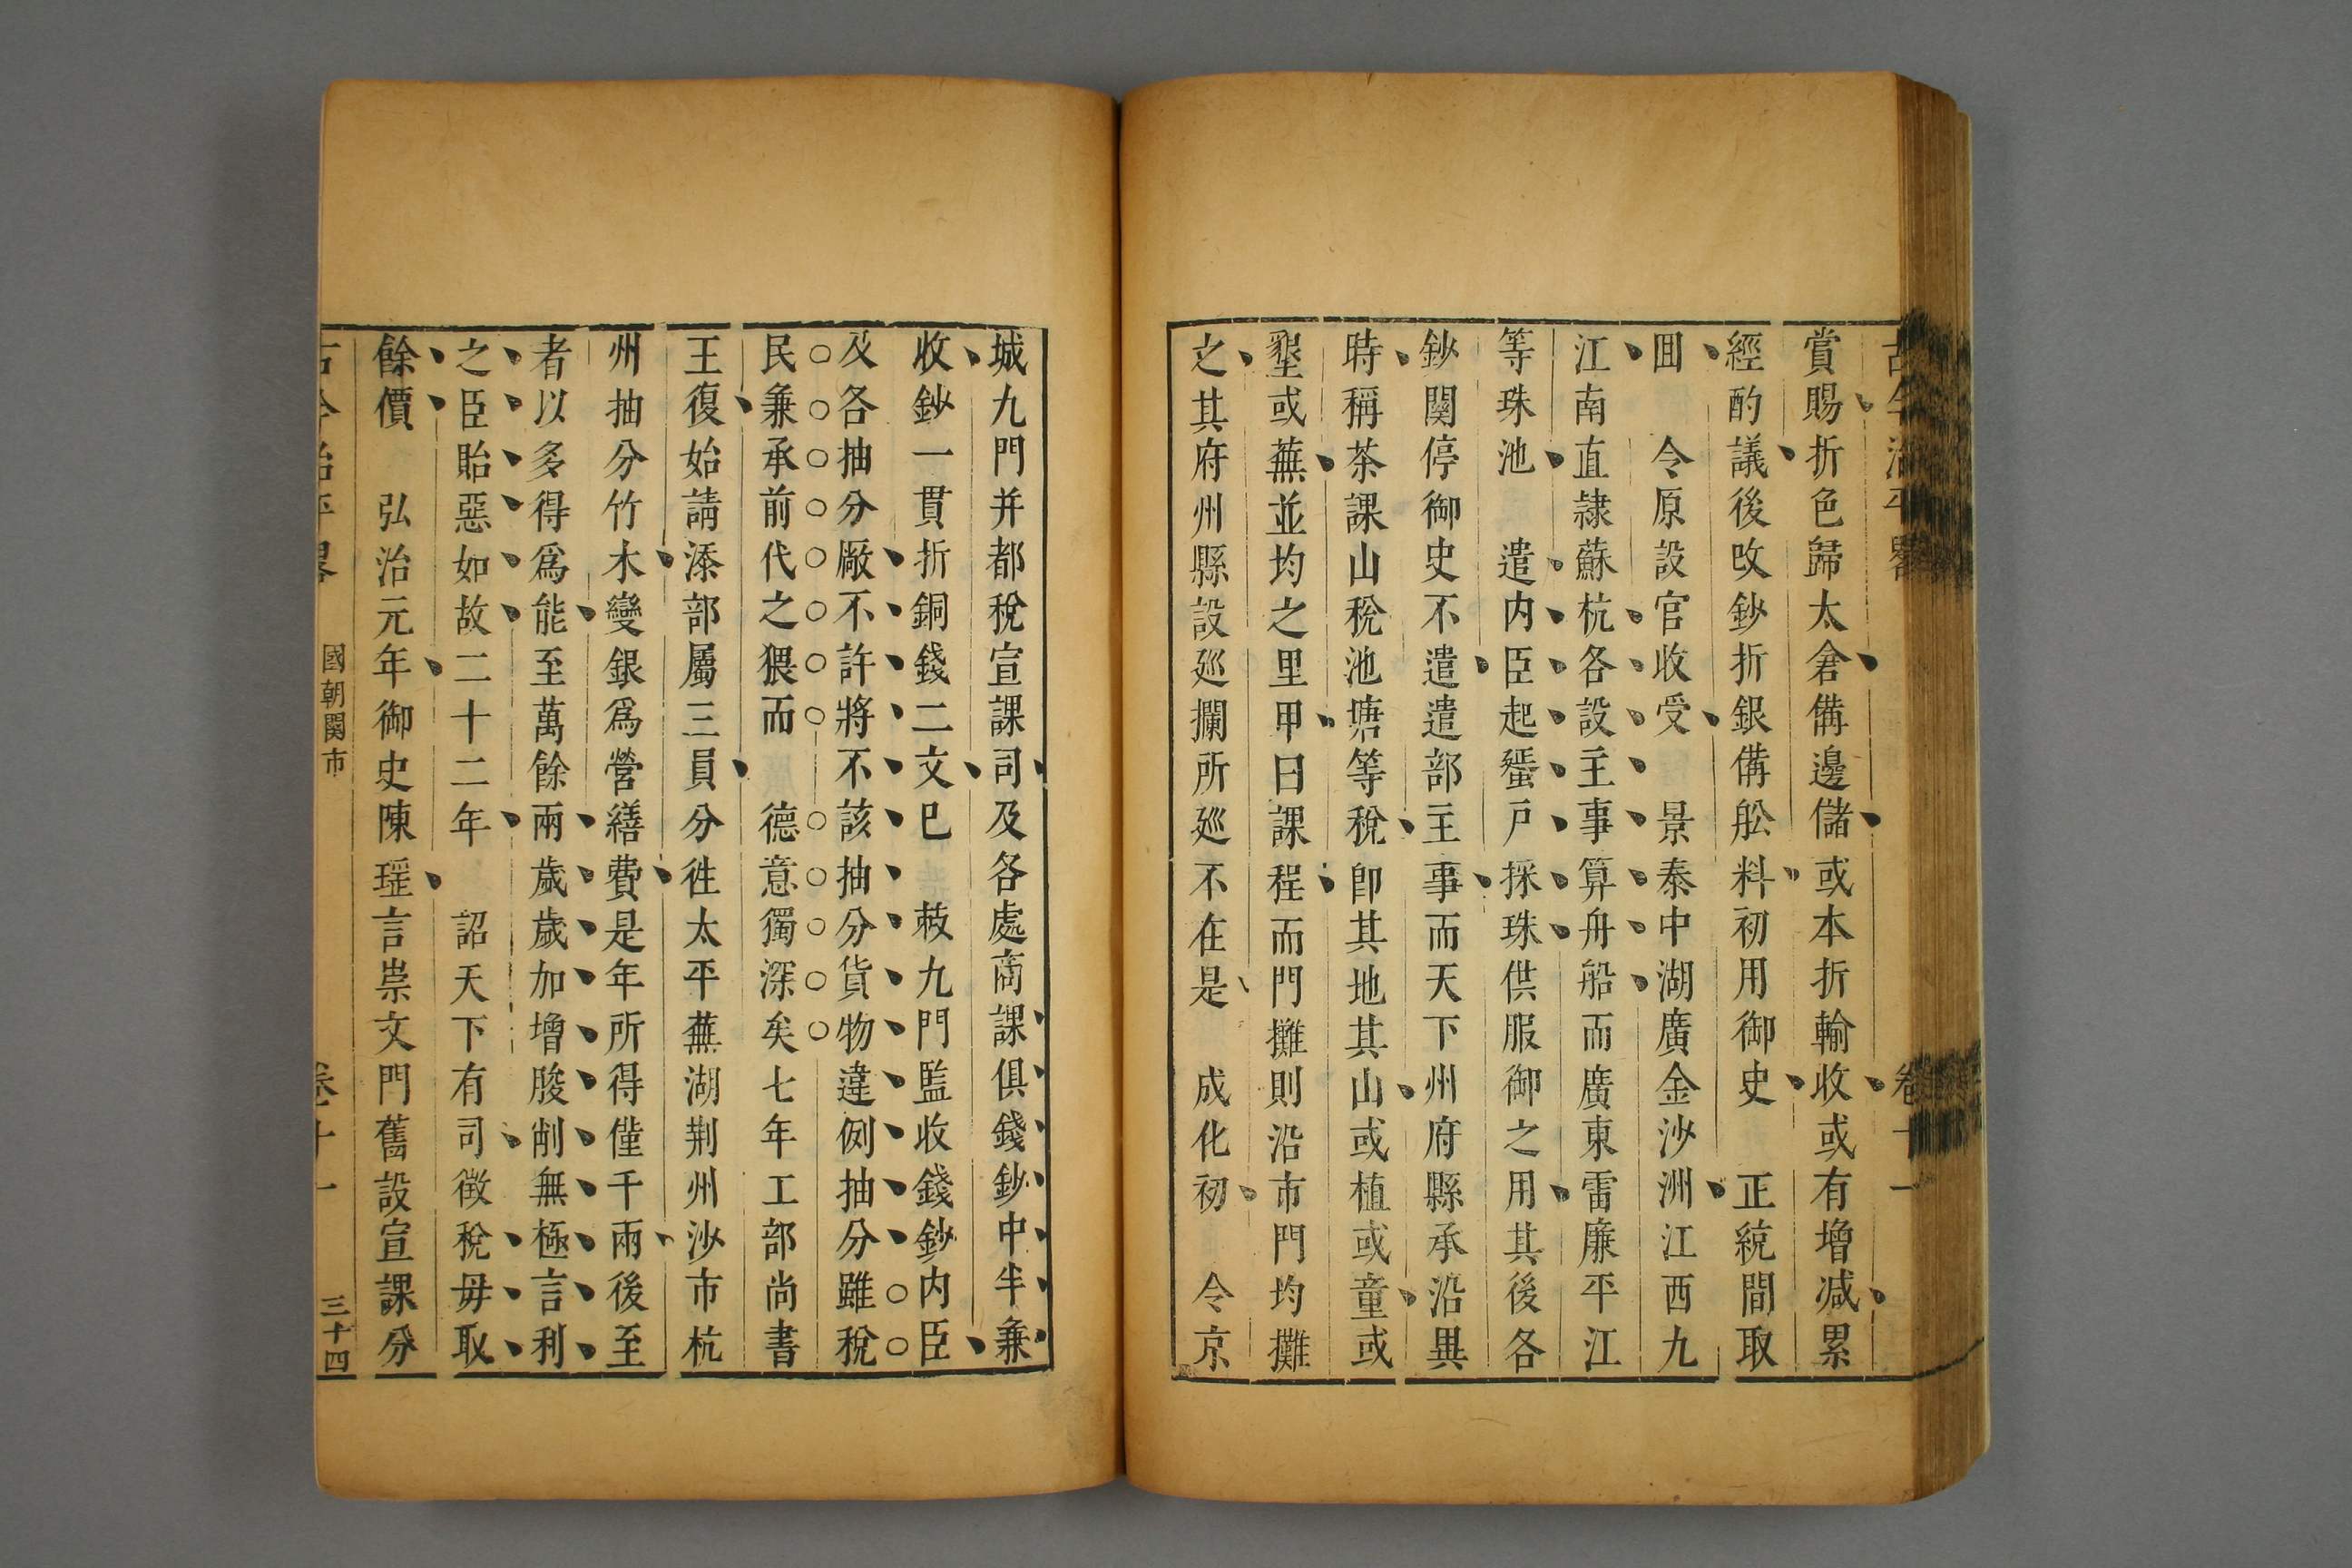 古今治平畧
卷十一
賞賜折色歸太倉備邊儲或本折輸收或有增减累
經酌議後攺鈔折銀備舩料初用御史　正統間取
囬　令原設官收受　景泰中湖廣金沙洲江西九
江南直隷蘇杭各設主事算舟船而廣東雷廉平江
等珠池　遣内臣起蜑戸採珠供服御之用其後各
鈔關停御史不遣遣部主事而天下州府縣承沿異
時稱茶課山稅池塘等稅卽其地其山或植或童或
墾或蕪並均之里甲曰課程而門攤則沿市門均攤
之其府州縣設廵攔所廵不在是　成化初　令京
城九門并都稅宣課司及各處商課俱錢鈔中半兼
收鈔一貫折銅錢二文已　敕九門監收錢鈔内臣
及各抽分厰不許將不該抽分貨物違例抽分雖稅
民兼承前代之猥而　德意獨深矣七年工部尚書
王復始請添部屬三員分徃太平蕪湖荆州沙市杭
州抽分竹木變銀爲營繕費是年所得僅千兩後至
者以多得爲能至萬餘兩歲歲加增朘削無極言利
之臣貽惡如故二十二年　詔天下有司徵稅毋取
餘價　弘治元年御史陳瑶言崇文門舊設宣課分
古今治平畧
國朝関市
卷十一
三十四